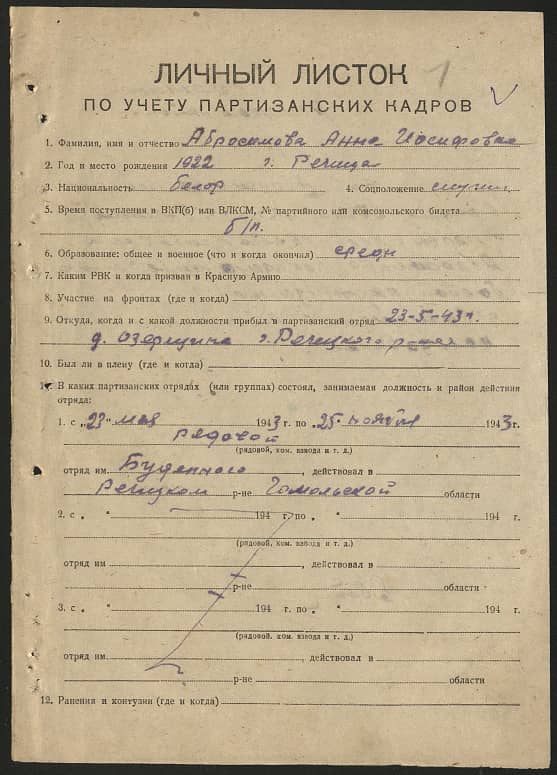 1
ЛИЧНЫЙ ЛИСТОК
ПО УЧЕТУ ПАРТИЗАНСКИХ КАДРОВ
1. Фамилия, имя и отчество Абросимова Анна Иосифовна
2. Год и место рождения 1922 г. Речица
3. Национальность белор 4. Соцположение служащ
5. Время поступления в ВКП(б) или ВЛКСМ, № партийного или комсомольского билета
б/п.
6. Образование: общее и военное (что и когда окончил) средн
7. Каким РВК и когда призван в Красную Армию
8. Участие на фронтах (где и когда)
9. Откуда, когда и с какой должности прибыл в партизанский отряд 23-5-43 г.
д. Озерщина Речицкого
10. Был ли в плену (где и когда)
11. В каких партизанских отрядах (или группах) состоял, занимаемая должность и район действия
отряда:
1. с „23" мая 1943 г. по „25 ноября 1943 г.
рядовой
(рядовой, ком. взвода и т. д.)
отряд им. Буденного, действовал в
Речицком р-не Гомельской области
2. с „ " 194 г. по „ " 194 г.
(рядовой, ком. взвода и т. д.)
отряд им, действовал в
р-не области
3. с „ " 194 г. по „ " 194 г.
(рядовой, ком. взвода и т. д.)
отряд им., действовал в
р-не области
12. Ранения и контузии (где и когда)